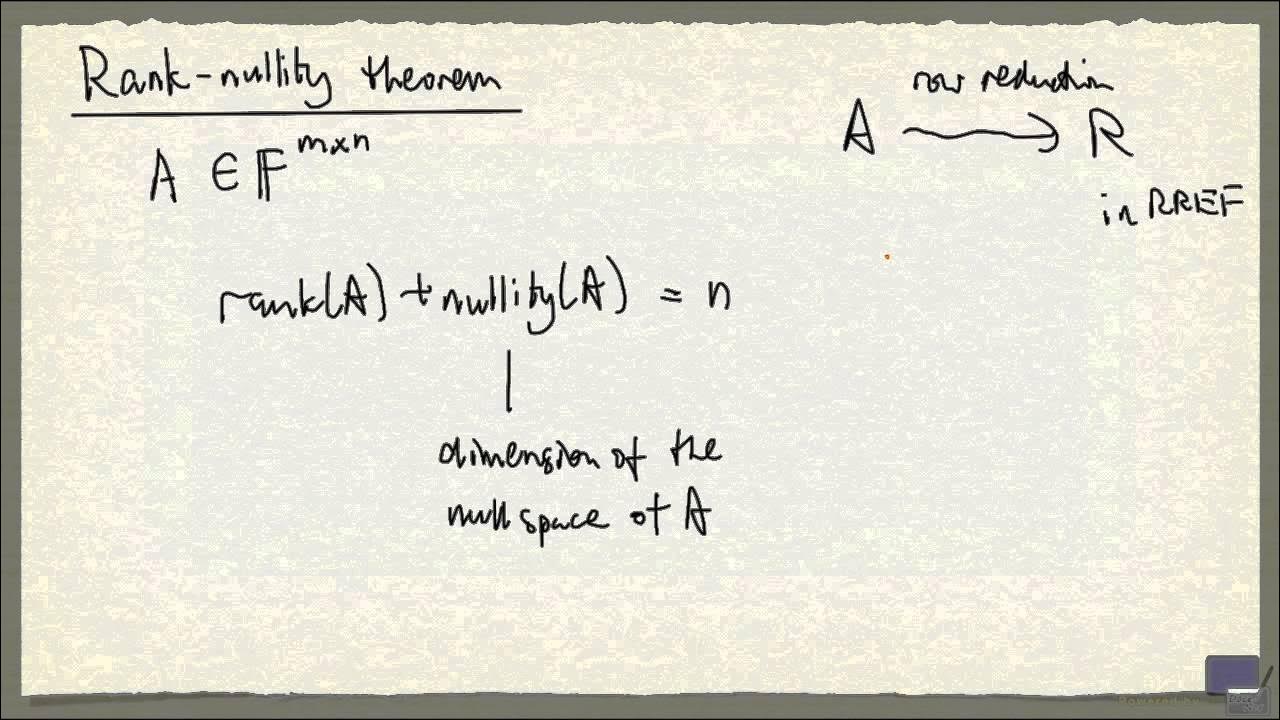 Rank-nullity theorem
A ∈ 𝔽^{m×n}
row reduction
A ⟶ R
in RREF
rank(A) + nullity(A) = n
dimension of the
nullspace of A